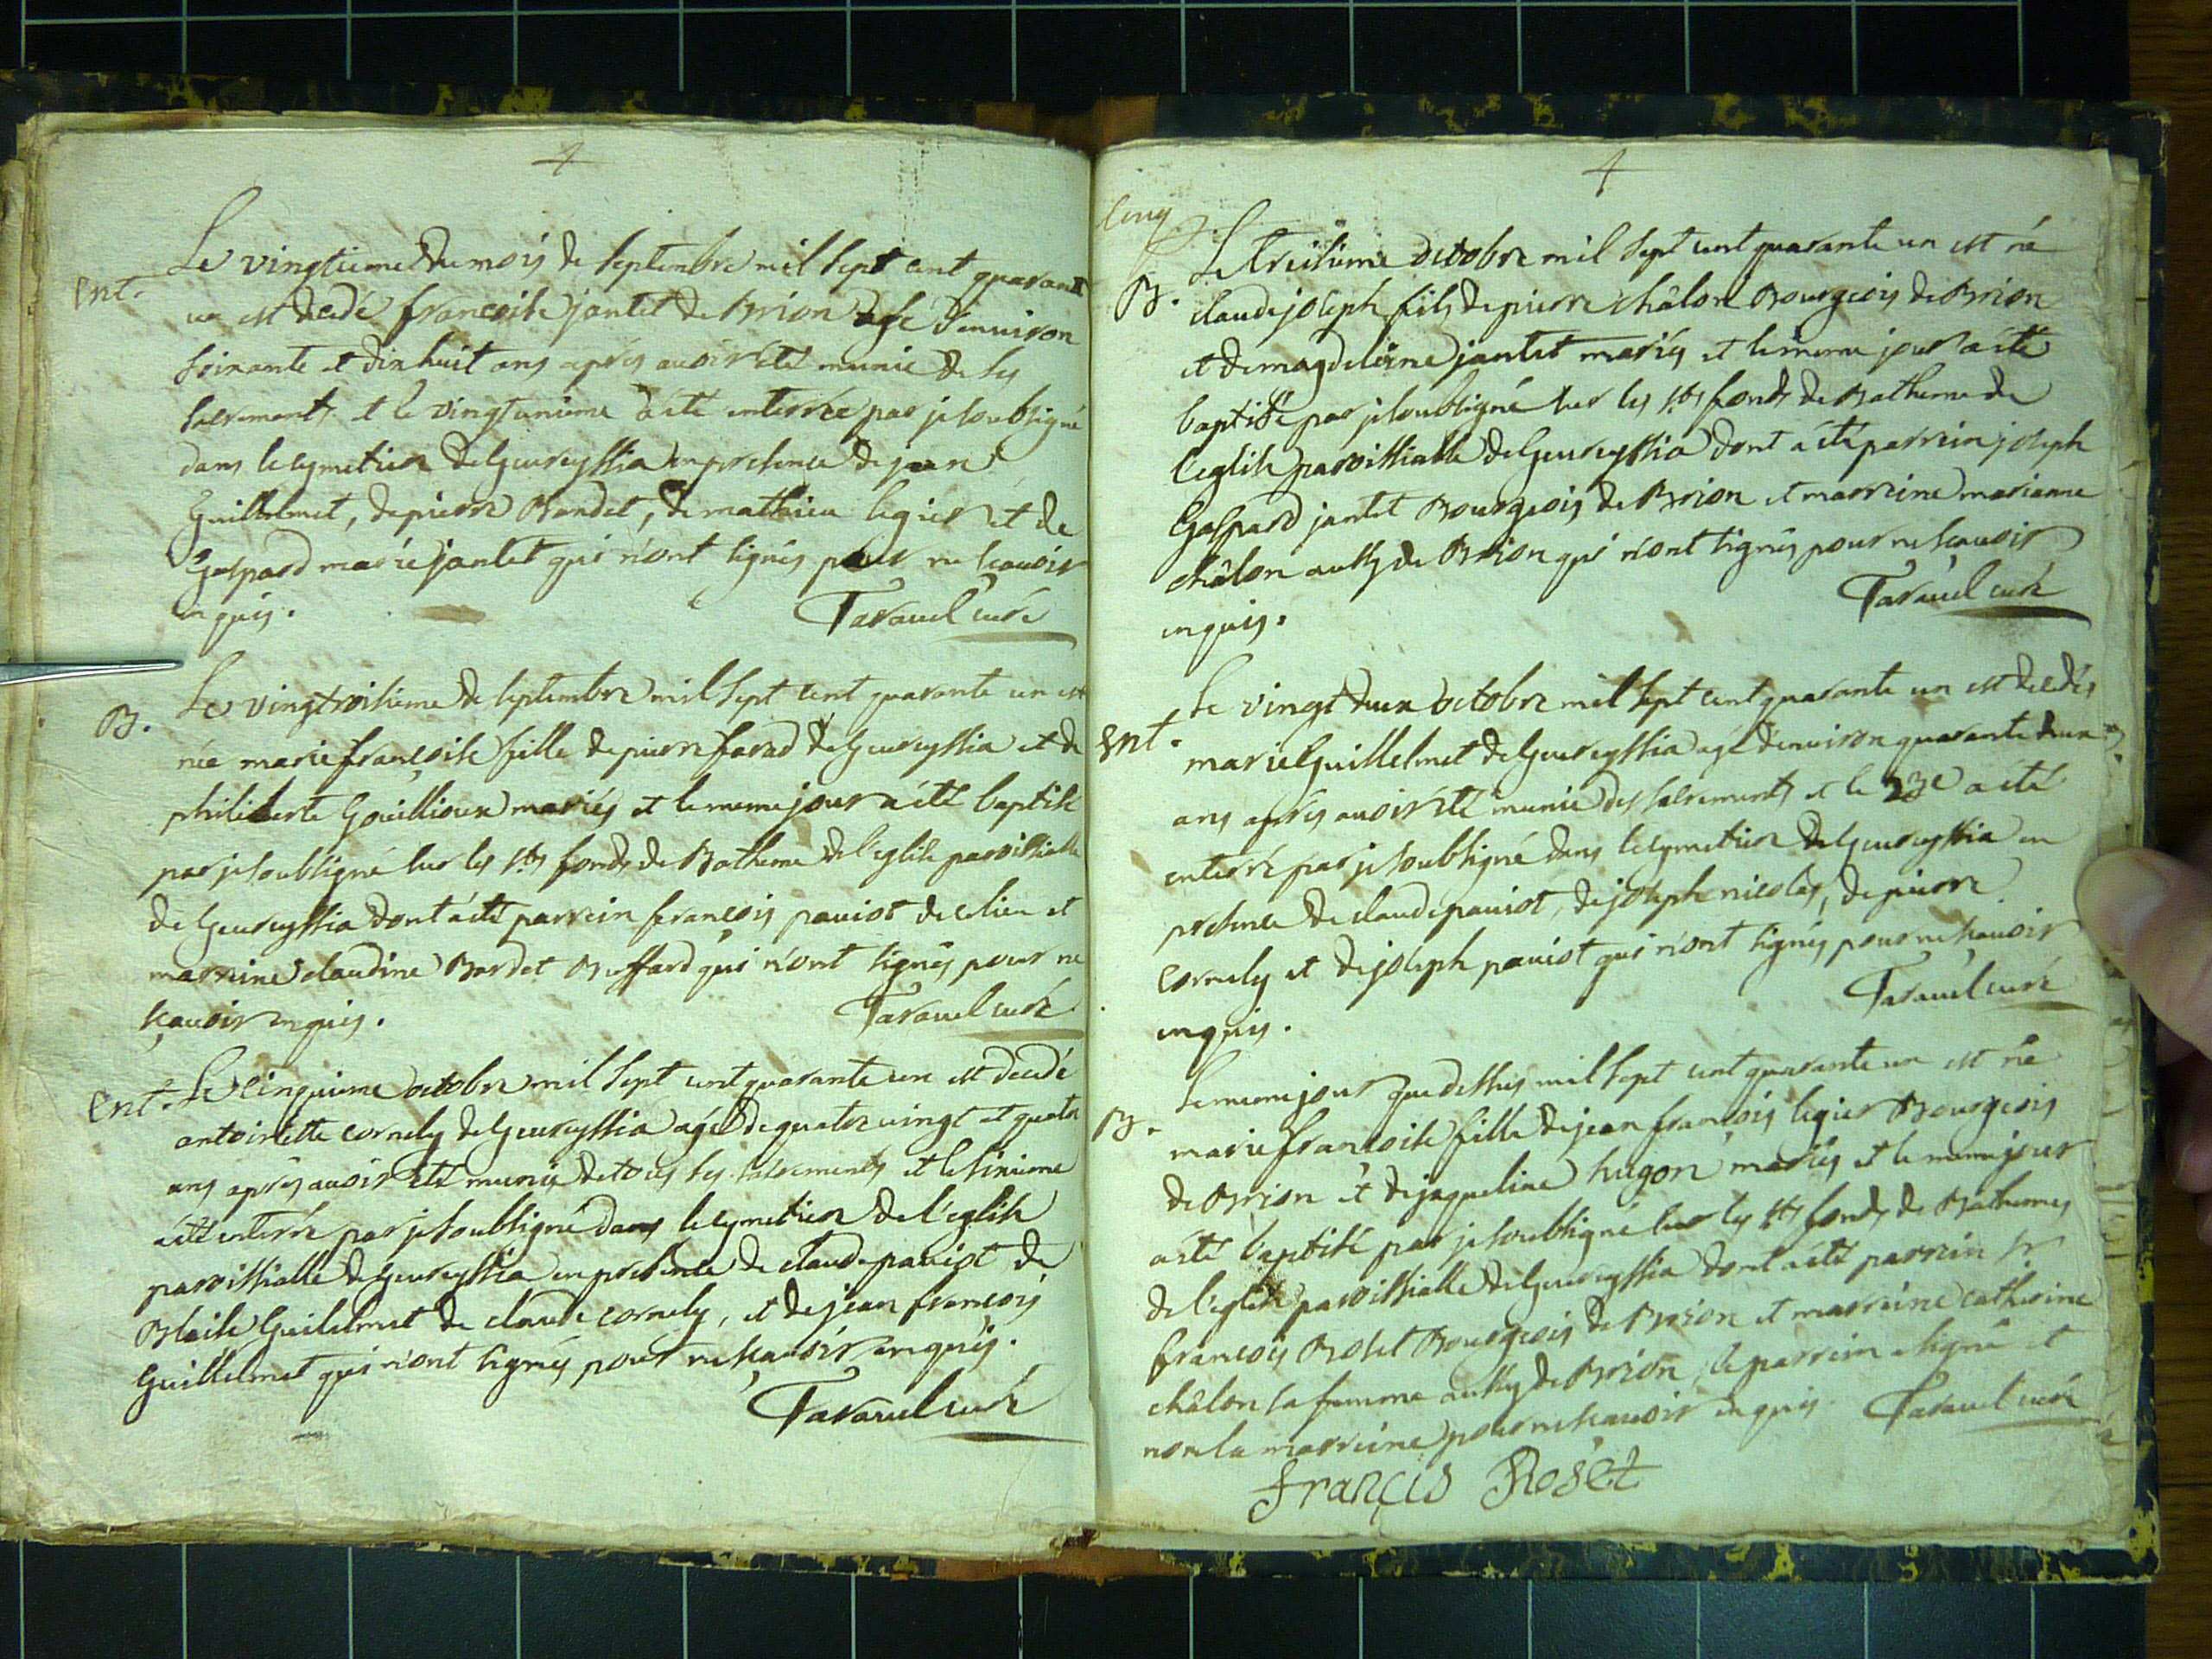 4
Ent.
Le vingtieme du mois de septembre mil sept cent quarante
un est decedé francoise jantet de Brion agée d'environ
soixante et dix huit ans après auoir eté munie de ses
sacrements et le vingtunieme a été enterrée par je soubsigné
dans le cymetiere de Geureyssia en presence de jean
Guillelmet, de pierre Bandet, de mathieu legier et de
Gaspard marie jantet qui n'ont signés pour ne scauoir
enquis.
Tarauel curé
B.
Le vingtroisieme de septembre mil sept cent quarante un est
née marie françoise fille de pierre farad de Geureyssia et de
philiberte Gouillioux mariés et le meme jour a été baptisée
par je soubsigné sur les sts fonds de Batheme de l'eglise paroissialle
de Geureyssia dont a été parrein françois pauiot de ce lieu et
marreine claudine Bordet Buffard qui n'ont signés pour ne
sçauoir enquis.
Tarauel curé
Ent.
Le cinquieme octobre mil sept cent quarante un est decedé
antoinette cornely de Geureyssia agée de quatre vingt et quatre
ans après auoir eté munis de tous ses sacrements et le sixieme
a été enterré par je soubsigné dans le cymetiere de l'eglise
paroissialle de Geureyssia en presence de claude pauiot de
Blaise Guilelmet de claude cornely, et de jean françois
Guillelmet qui n'ont signés pour ne sçauoir enquis.
Tarauel curé
4
cinq
B.
Le treisieme octobre mil sept cent quarante un est né
claude joseph fils de pierre châlon Bourgeois de Brion
et de magdeleine jantet mariés et le meme jour a été
baptisé par je soubsigné sur les sts fonds de Batheme de
l'eglise paroissialle de Geureyssia dont a été parrein joseph
Gaspard jantet Bourgeois de Brion et marreine marianne
châlon aussy de Brion qui n'ont signés pour ne scauoir
enquis.
Tarauel curé
Ent.
Le vingt deux octobre mil sept cent quarante un est decedés
marie Guillelmet de Geureyssia agé d'environ quarante deux
ans après auoir eté munie des sacrements et le 23e a été
enterré par je soubsigné dans le cymetiere de Geureyssia en
presence de claude pauiot, de joseph nicolas, de pierre
cornely et de joseph pauiot qui n'ont signés pour ne scauoir
enquis.
Tarauel curé
B.
Le meme jour que dessus mil sept cent quarante un est née
marie francoise fille de jean françois legier Bourgeois
de Brion et de jaqueline hugon mariés et le meme jour
a été baptisé par je soubsigné sur les sts fonds de Bathemes
de l'eglise paroissialle de Geureyssia dont a été parrein sr
françois Roset Bourgeois de Brion et marreine catherine
châlon sa femme aussy de Brion, le parrein a signé et
non la marreine pour ne scauoir enquis. Tarauel curé
françis Roset